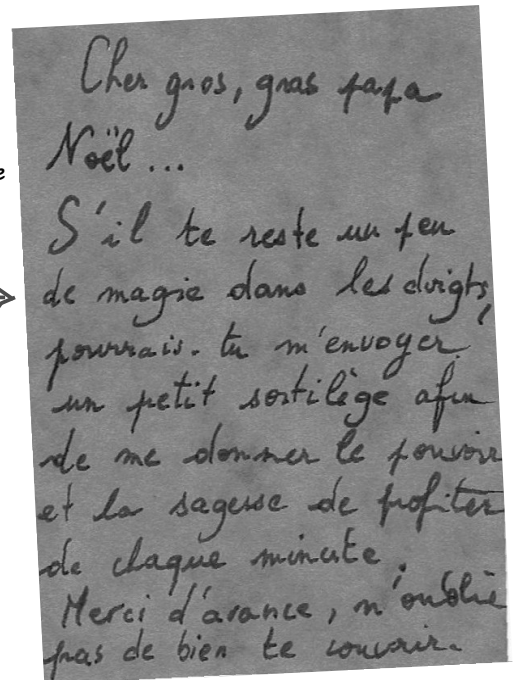 Cher gros, gras papa
Noël...
e
S'il te reste un peu
de magie dans les doigts,
pourrais-tu m'envoyer
un petit sortilège afin
de me donner le pouvoir
et la sagesse de profiter
de chaque minute.
Merci d'avance, n'oublie
pas de bien te couvrir.